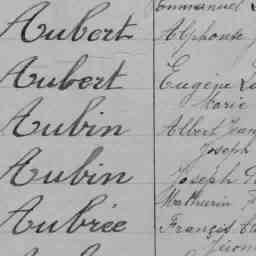 Emmanuel
Aubert Alphonse
Aubert Eugène
Marie
Aubin Albert Jean
Joseph
Aubin Joseph
Mathurin
Aubrée François
Jérom